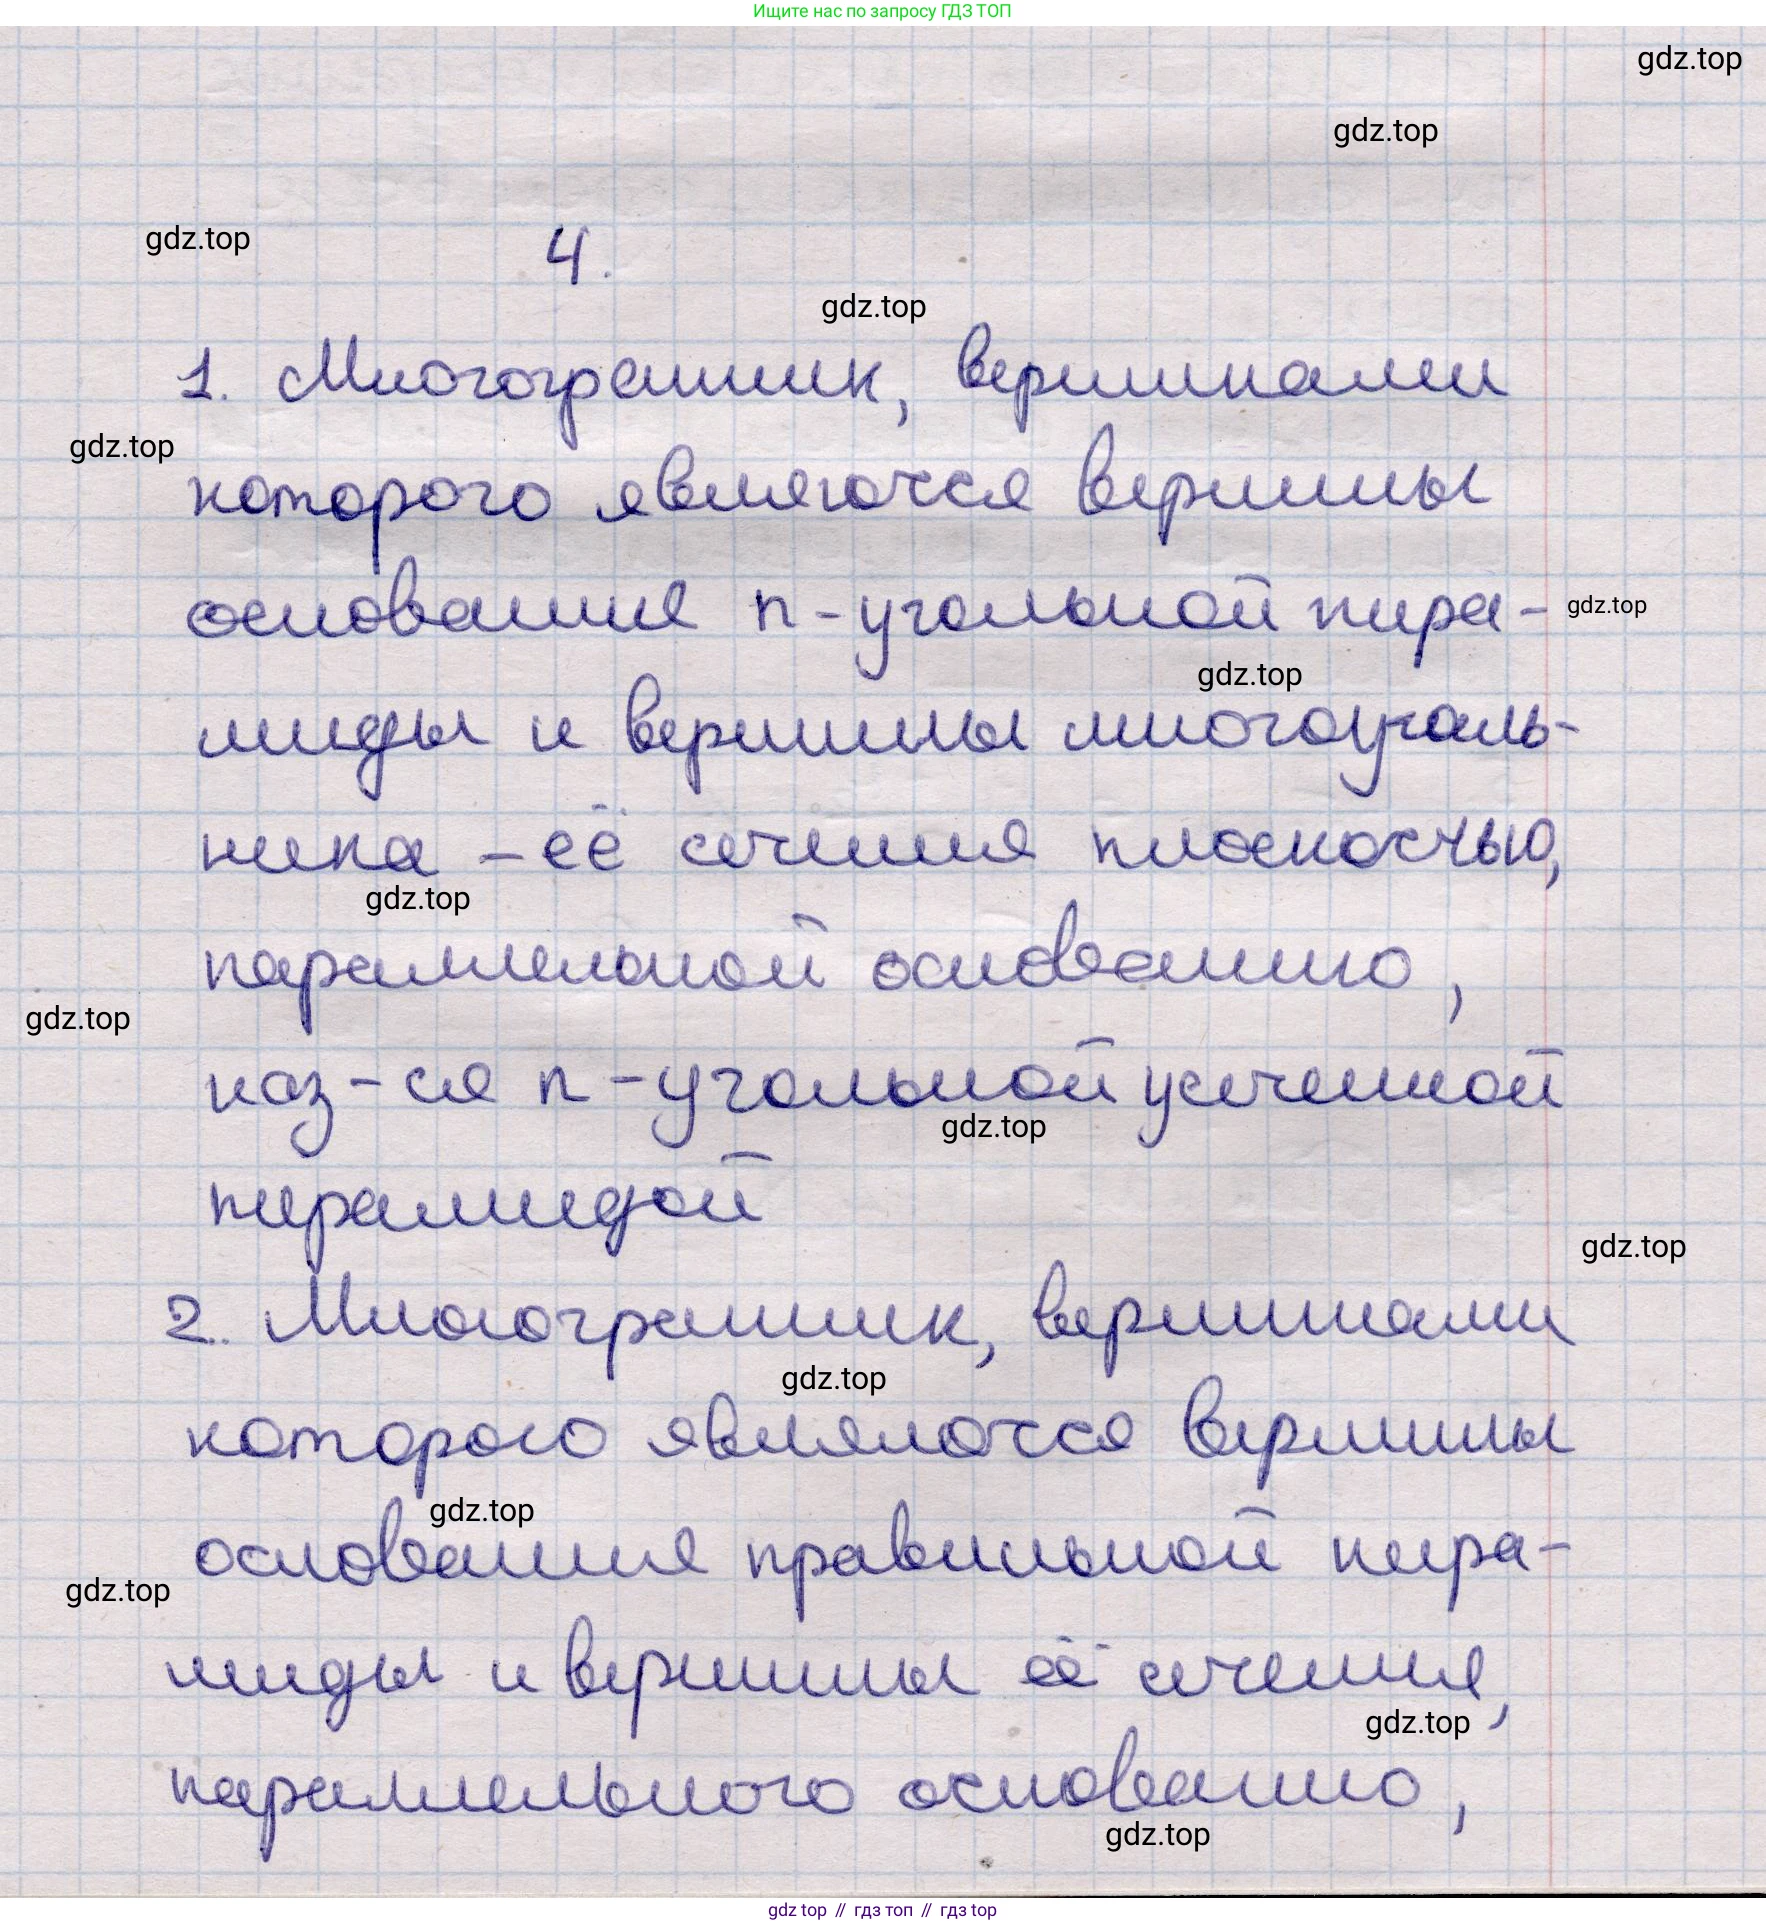 Ищите нас по запросу ГДЗ ТОП
gdz.top
gdz.top
gdz.top
4.
gdz.top
1. Многогранник, вершинами
gdz.top
которого являются вершины
основания n-угольной пира-
gdz.top
gdz.top
миды и вершины многоуголь-
ника - её сечения плоскостью,
gdz.top
параллельной основанию,
gdz.top
наз-ся n-угольной усеченной
gdz.top
пирамидой
gdz.top
2. Многогранник, вершинами
gdz.top
которого являются вершины
gdz.top
основания правильной пира-
gdz.top
миды и вершины её сечения,
gdz.top
параллельного основанию,
gdz.top
gdz top // гдз топ // гдз top